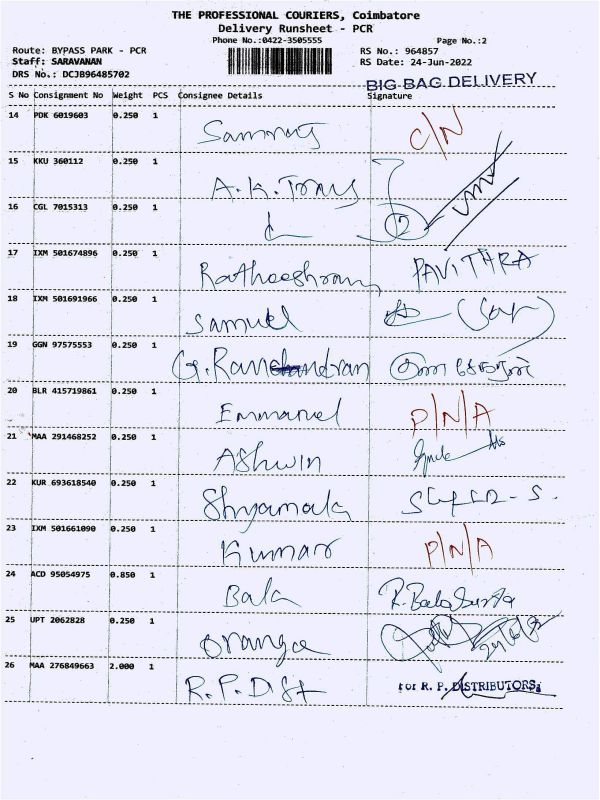 THE PROFESSIONAL COURIERS, Coimbatore
Delivery Runsheet - PCR
Phone No.:0422-3505555 Page No.:2
Route: BYPASS PARK - PCR RS No.: 964857
Staff: SARAVANAN RS Date: 24-Jun-2022
DRS No.: DCJB96485702
BIG BAG DELIVERY
S No Consignment No Weight PCS Consignee Details Signature
14 PDK 6019603 0.250 1
C/N
15 KKU 360112 0.250 1
A.K. Tomy
16 CGL 7015313 0.250 1
2
17 IXM 501674896 0.250 1
PAVITHRA
18 IXM 501691966 0.250 1
Samuel
19 GGN 97575553 0.250 1
G. Ramchandran
20 BLR 415719861 0.250 1
Emmanuel P/N/A
21 MAA 291468252 0.250 1
Ashwin
22 KUR 693618540 0.250 1
Shyamala
23 IXM 501661090 0.250 1
Kumar P/N/A
24 ACD 95054975 0.850 1
Bala
25 UPT 2062828 0.250 1
Orange
26 MAA 276849663 2.000 1
R.P. Dist For R. P. DISTRIBUTORS,